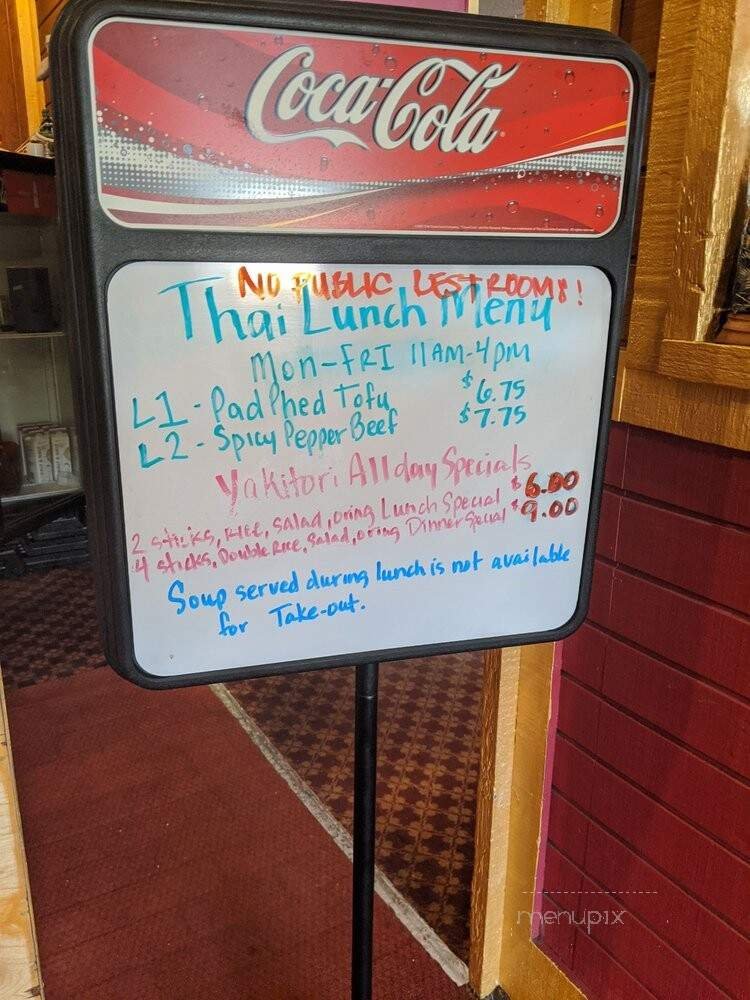 Coca-Cola
NO PUBLIC RESTROOMS!
Thai Lunch Menu
Mon-FRI 11AM-4pm
L1 - Pad Phed Tofu $6.75
L2 - Spicy Pepper Beef $7.75
Yakitori All day Specials
2 sticks, Rice, salad, oring Lunch Special $6.00
4 sticks, Double Rice, Salad, oring Dinner Special $9.00
Soup served during lunch is not available
for Take-out.
menupix